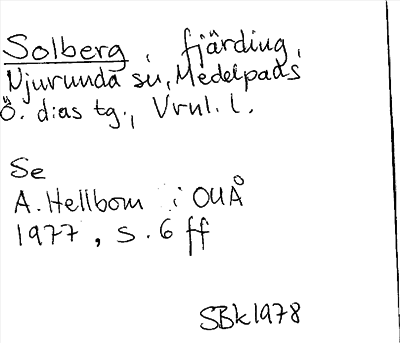 Solberg, fjärding,
Njurunda sn, Medelpads
Ö. d:as tg., Vrnl. l.
Se
A. Hellbom i OUÅ
1977, s. 6 ff
SBk1978